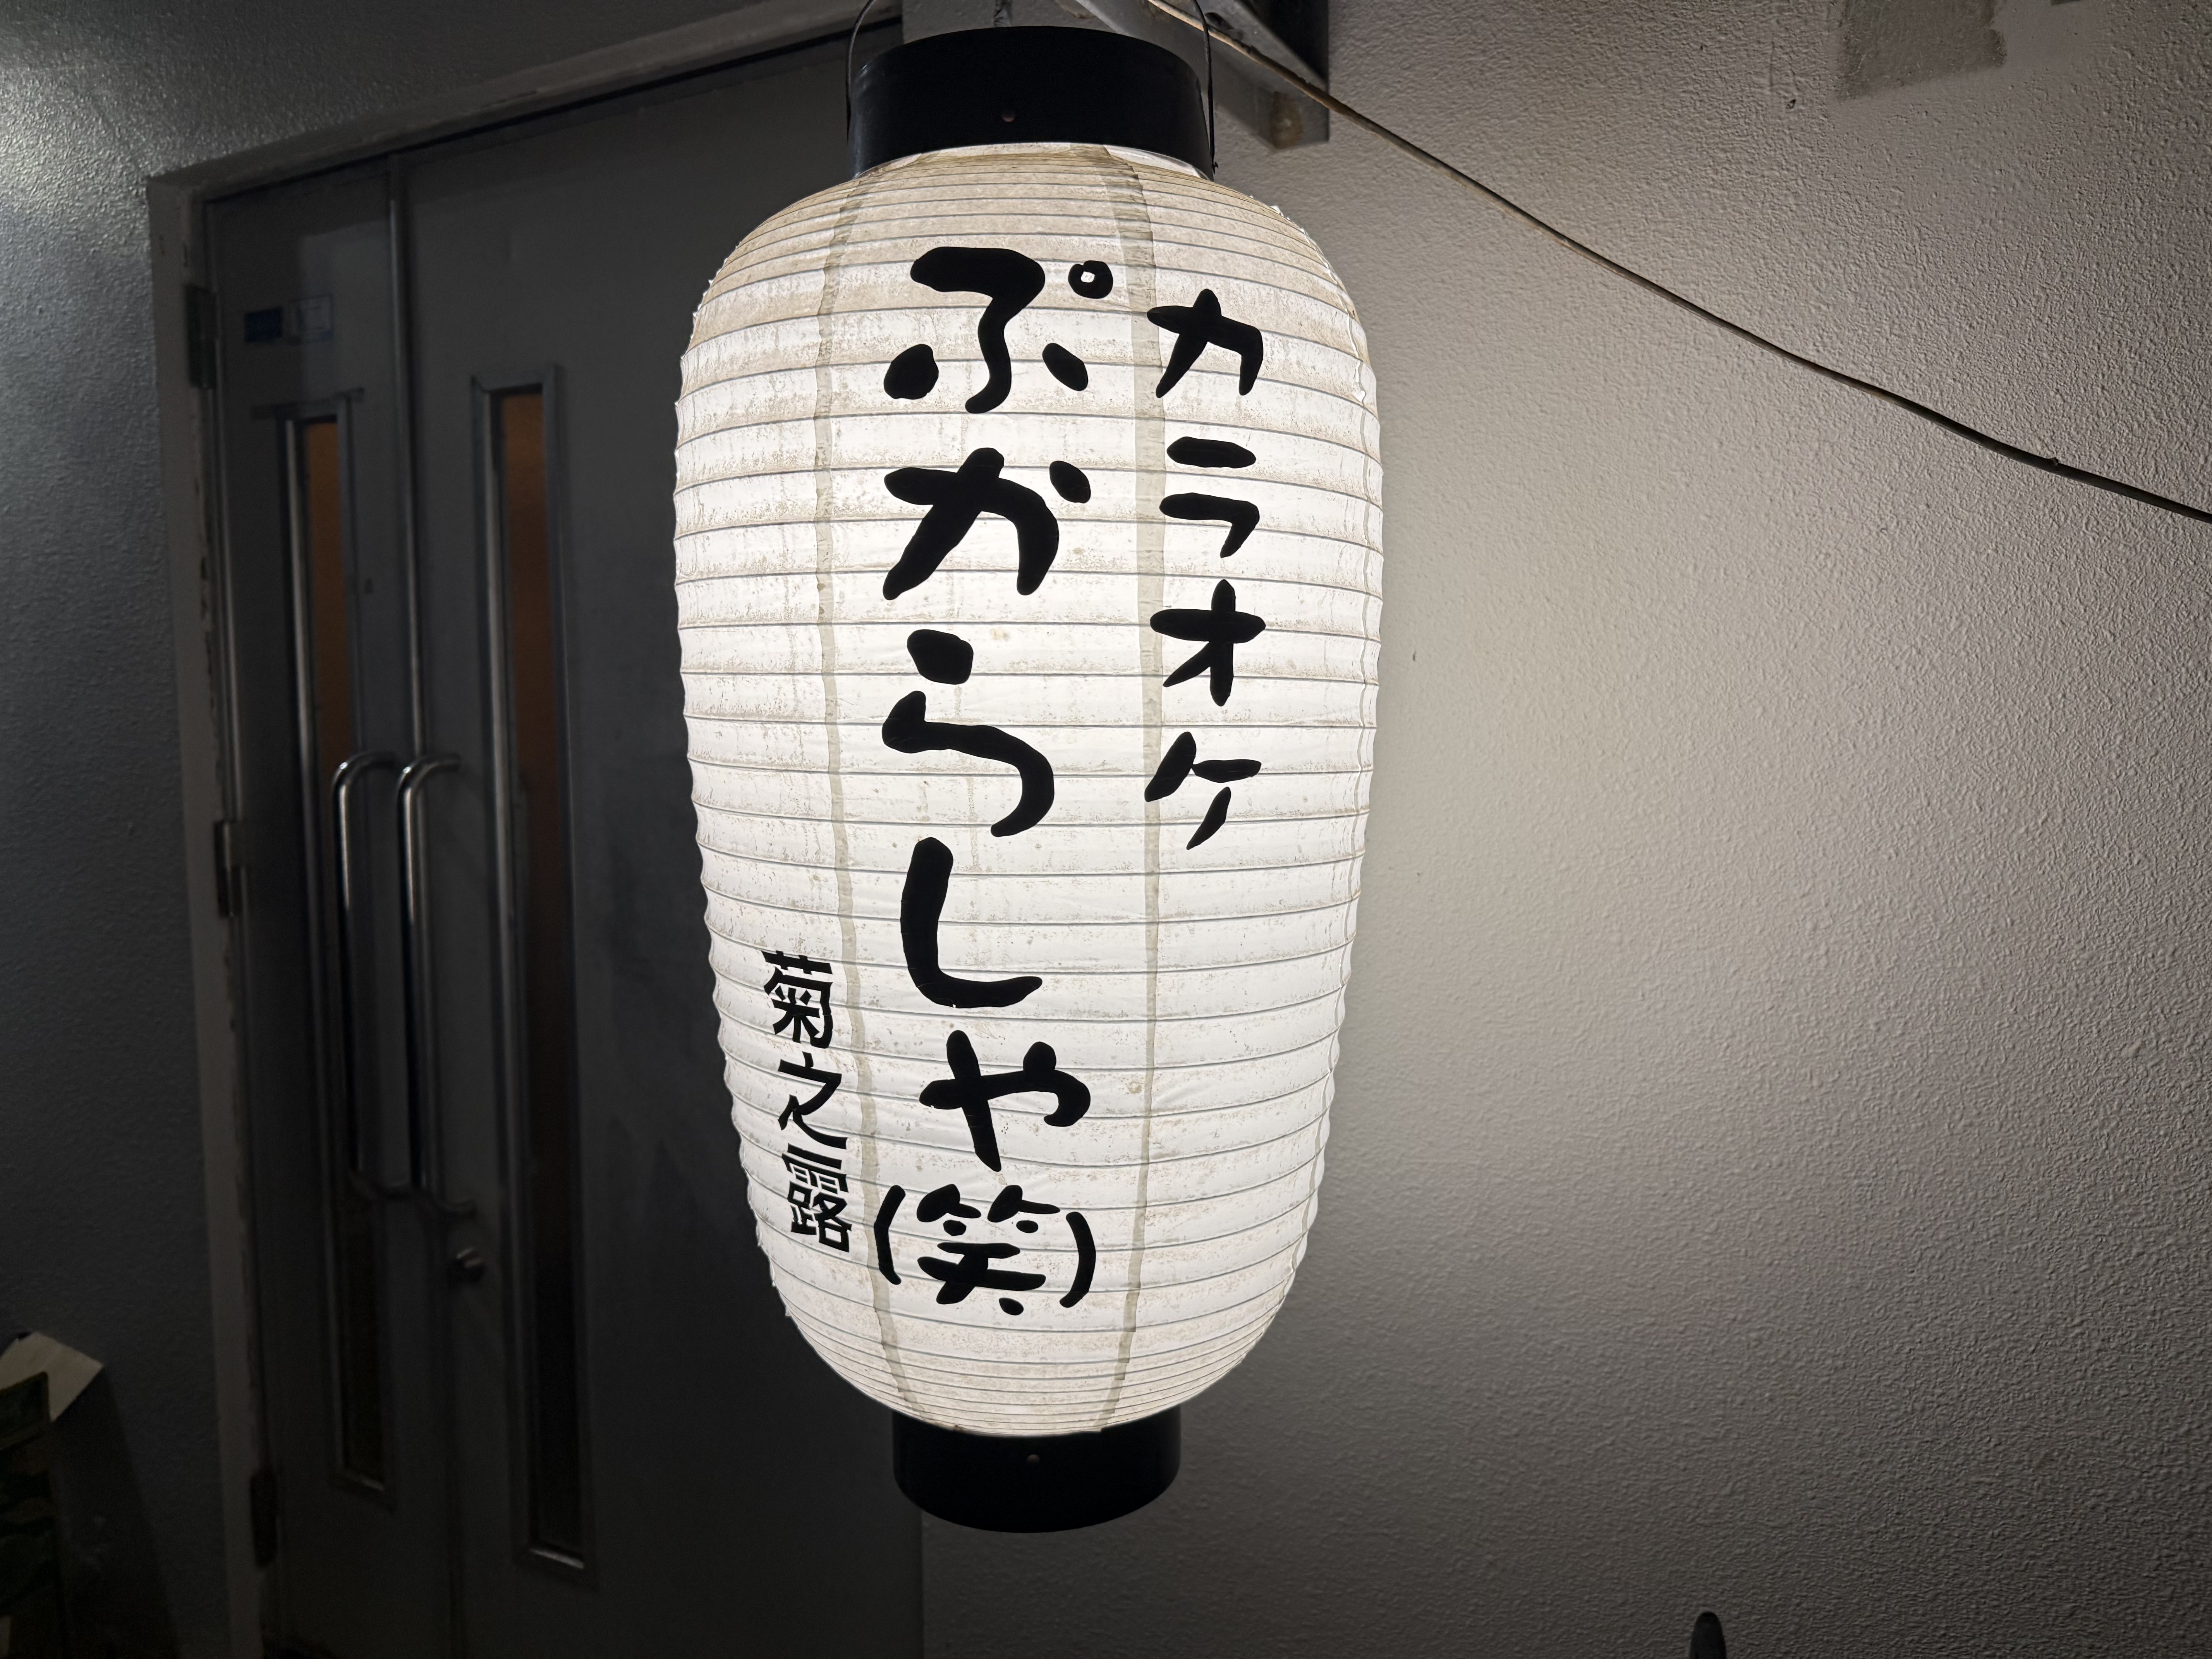 カラオケ
ぷからしゃ(笑)
菊之露